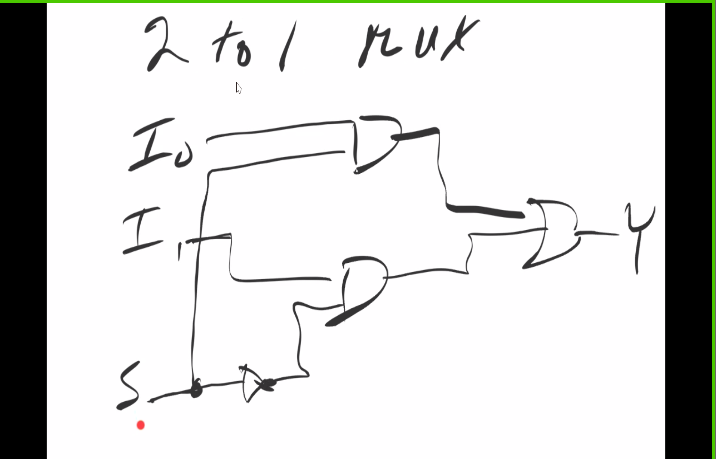 2 to 1 mux
I0
I1
Y
S